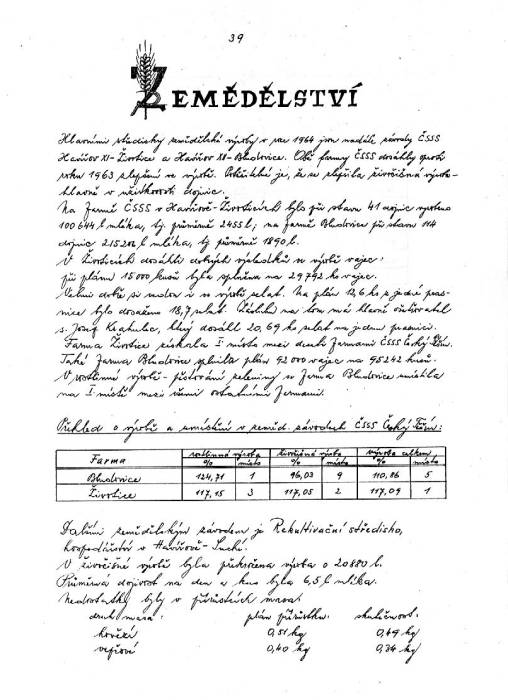 39
ZEMĚDĚLSTVÍ
Hlavními středisky zemědělské výroby v roce 1964 jsou nadále závody ČSSS
Havířov XI-Životice a Havířov XII-Bludovice. Obě farmy ČSSS dosáhly proti
roku 1963 zlepšení ve výrobě. Potěšitelné je, že se zlepšila živočišná výroba-
hlavně v užitkovosti dojnic.
Na farmě ČSSS v Havířově-Životicích bylo při stavu 41 dojnic vyrobeno
100 644 l mléka, tj. průměrně 2455 l; na farmě Bludovice při stavu 114
dojnic 215 206 l mléka, tj. průměrně 1890 l.
V Životicích dosáhli dobrých výsledků ve výrobě vajec:
při plánu 15 000 kusů byla splněna na 29 792 ks vajec.
Velmi dobře si vedou i ve výrobě selat. Na plán 12,6 ks z jedné pras-
nice bylo dosaženo 18,7 selat. Zásluhu na tom má hlavní ošetřovatel
s. Josef Krahulec, který dosáhl 20,69 ks selat na jednu prasnici.
Farma Životice získala I. místo mezi všemi farmami ČSSS Český Těšín.
Také farma Bludovice splnila plán 92 000 vajec na 95 242 kusů.
V rostlinné výrobě - pěstování zeleniny se farma Bludovice umístila
na I. místě mezi všemi ostatními farmami.
Přehled o výrobě a umístění v zeměd. závodech ČSSS Český Těšín:
Farma rostlinná výroba živočišná výroba výroba celkem
% místo % místo % místo
Bludovice 124,71 1 96,03 9 110,86 5
Životice 117,15 3 117,05 2 117,09 1
Dalším zemědělským závodem je Rekultivační středisko,
hospodářství v Havířově-Suché.
V živočišné výrobě byla překročena výroba o 20880 l.
Průměrná dojivost na den a kus byla 6,5 l mléka.
Nedostatky byly v přírůstcích masa:
druh masa: plán přírůstku: skutečnost:
hovězí 0,51 kg 0,49 kg
vepřové 0,40 kg 0,34 kg